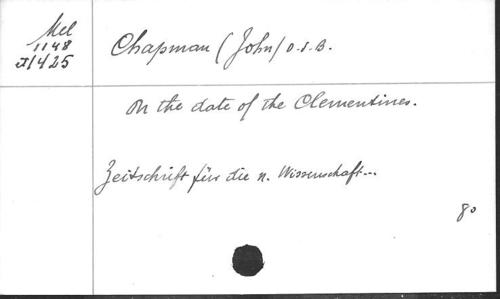 Mel
1148
Chapman (John) O.S.B.
1425
On the date of the Clementines.
Zeitschrift für die n. Wissenschaft...
80